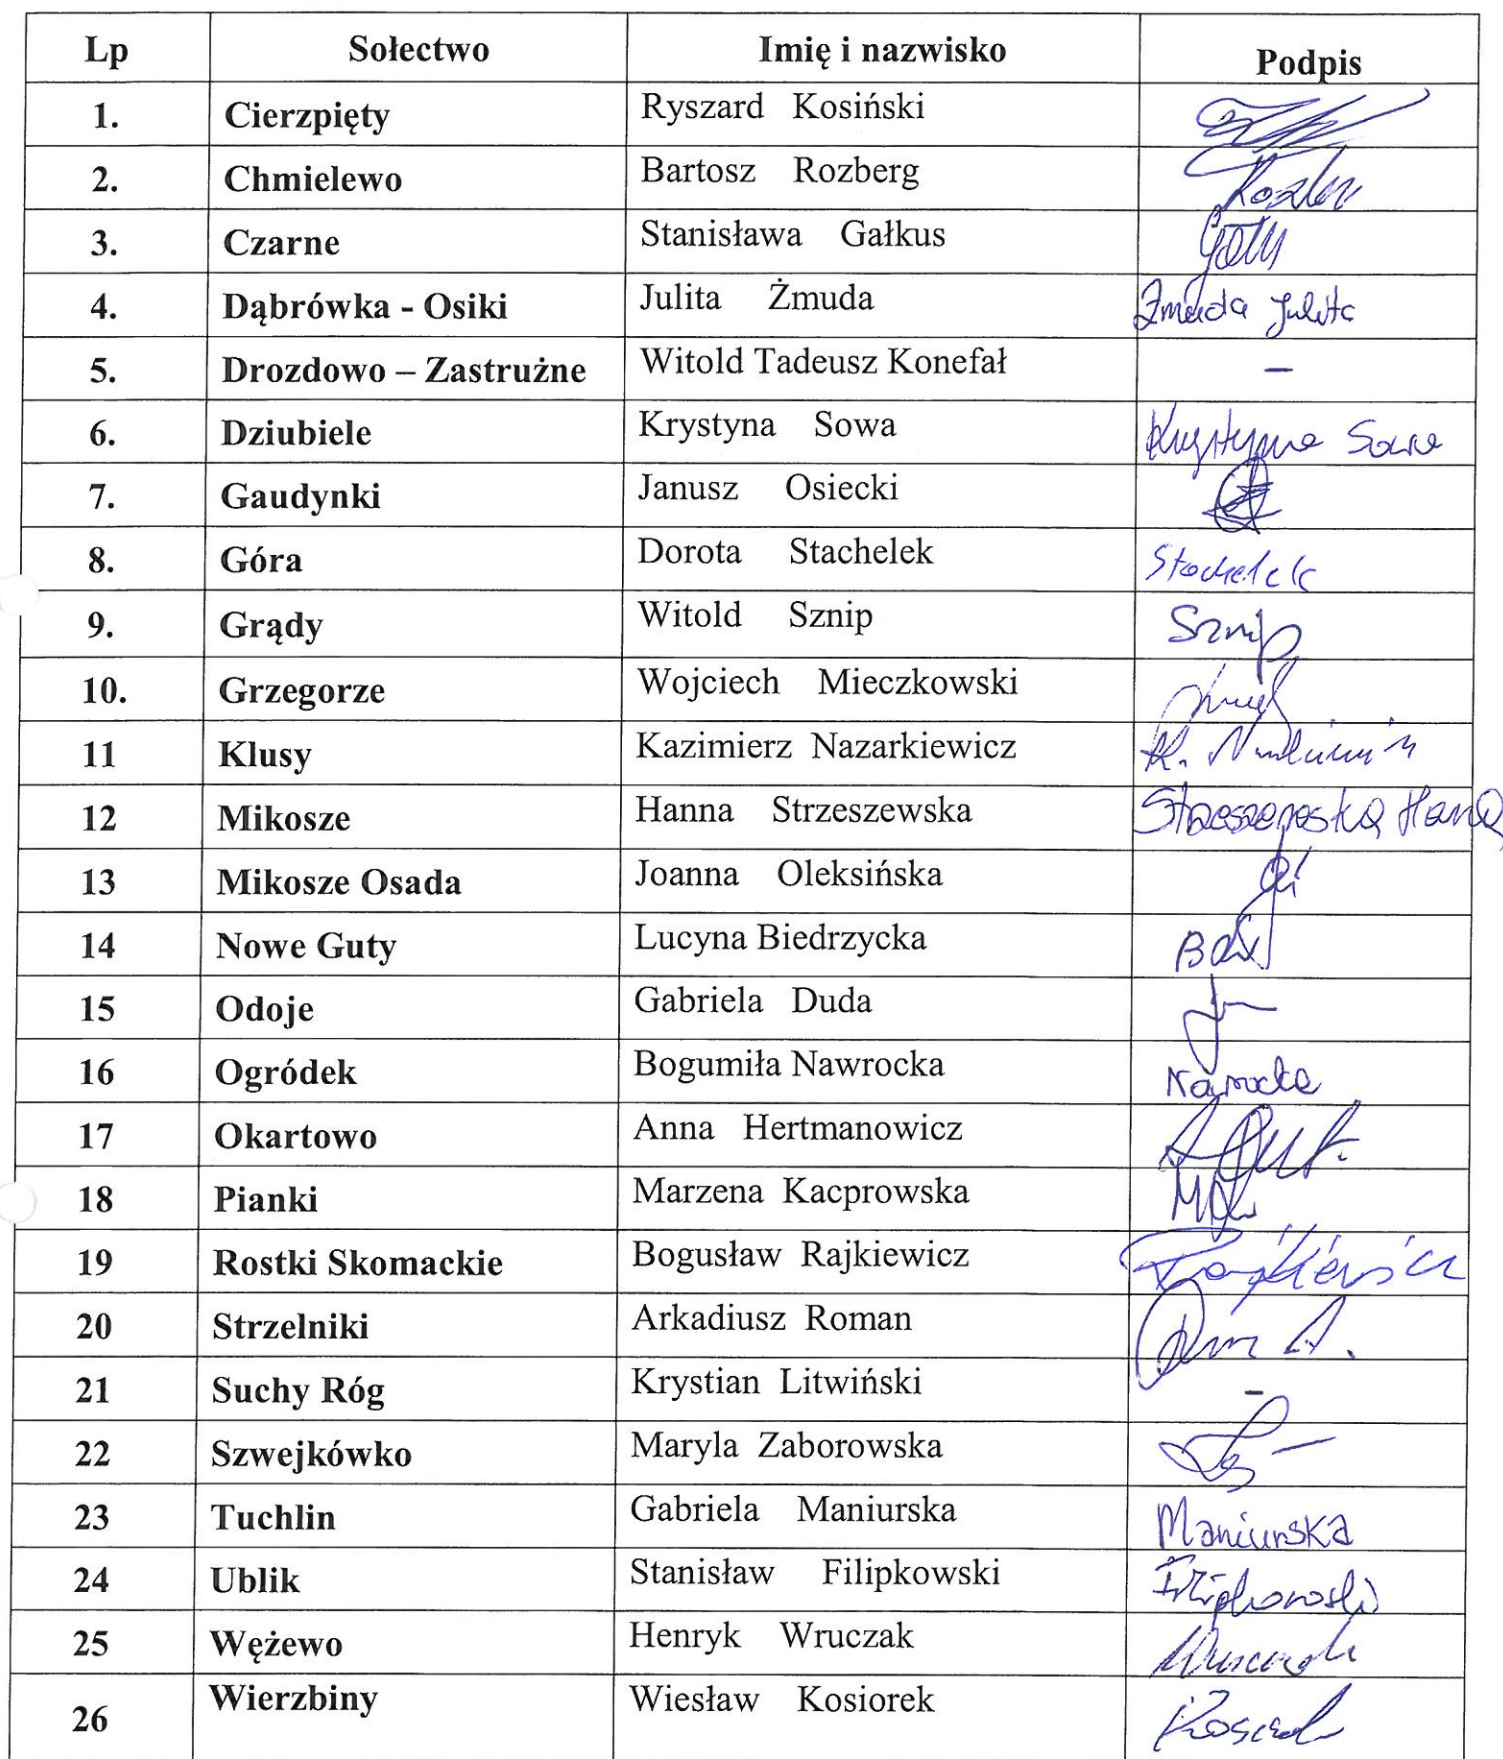 Lp Sołectwo Imię i nazwisko Podpis
1. Cierzpięty Ryszard Kosiński
2. Chmielewo Bartosz Rozberg
3. Czarne Stanisława Gałkus
4. Dąbrówka - Osiki Julita Żmuda Żmuda Julita
5. Drozdowo – Zastrużne Witold Tadeusz Konefał –
6. Dziubiele Krystyna Sowa Krystyna Sowa
7. Gaudynki Janusz Osiecki
8. Góra Dorota Stachelek Stachelek
9. Grądy Witold Sznip Sznip
10. Grzegorze Wojciech Mieczkowski
11 Klusy Kazimierz Nazarkiewicz K.
12 Mikosze Hanna Strzeszewska
13 Mikosze Osada Joanna Oleksińska
14 Nowe Guty Lucyna Biedrzycka
15 Odoje Gabriela Duda
16 Ogródek Bogumiła Nawrocka
17 Okartowo Anna Hertmanowicz
18 Pianki Marzena Kacprowska
19 Rostki Skomackie Bogusław Rajkiewicz Rajkiewicz
20 Strzelniki Arkadiusz Roman
21 Suchy Róg Krystian Litwiński –
22 Szwejkówko Maryla Zaborowska
23 Tuchlin Gabriela Maniurska Maniurska
24 Ublik Stanisław Filipkowski Filipkowski
25 Wężewo Henryk Wruczak
26 Wierzbiny Wiesław Kosiorek